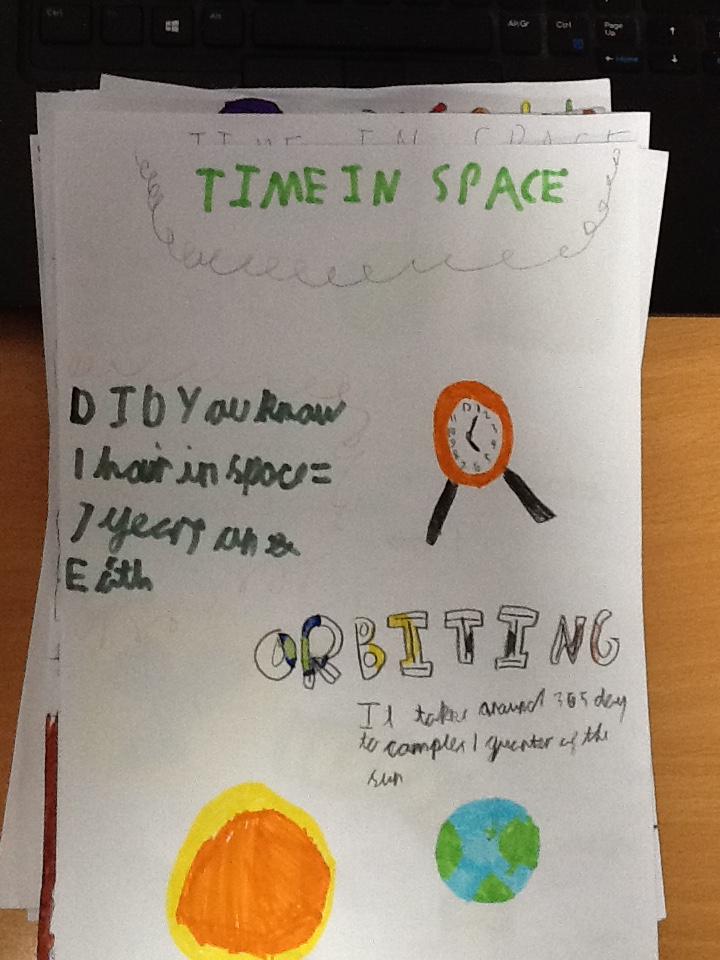 Ctrl
Alt
Alt Gr
Ctrl
Page Up
Home
TIME IN SPACE
TIME IN SPACE
DID You know
1 hour in space =
7 years on
Eath
ORBITING
It takes around 365 day
to complet 1 quarter of the
sun